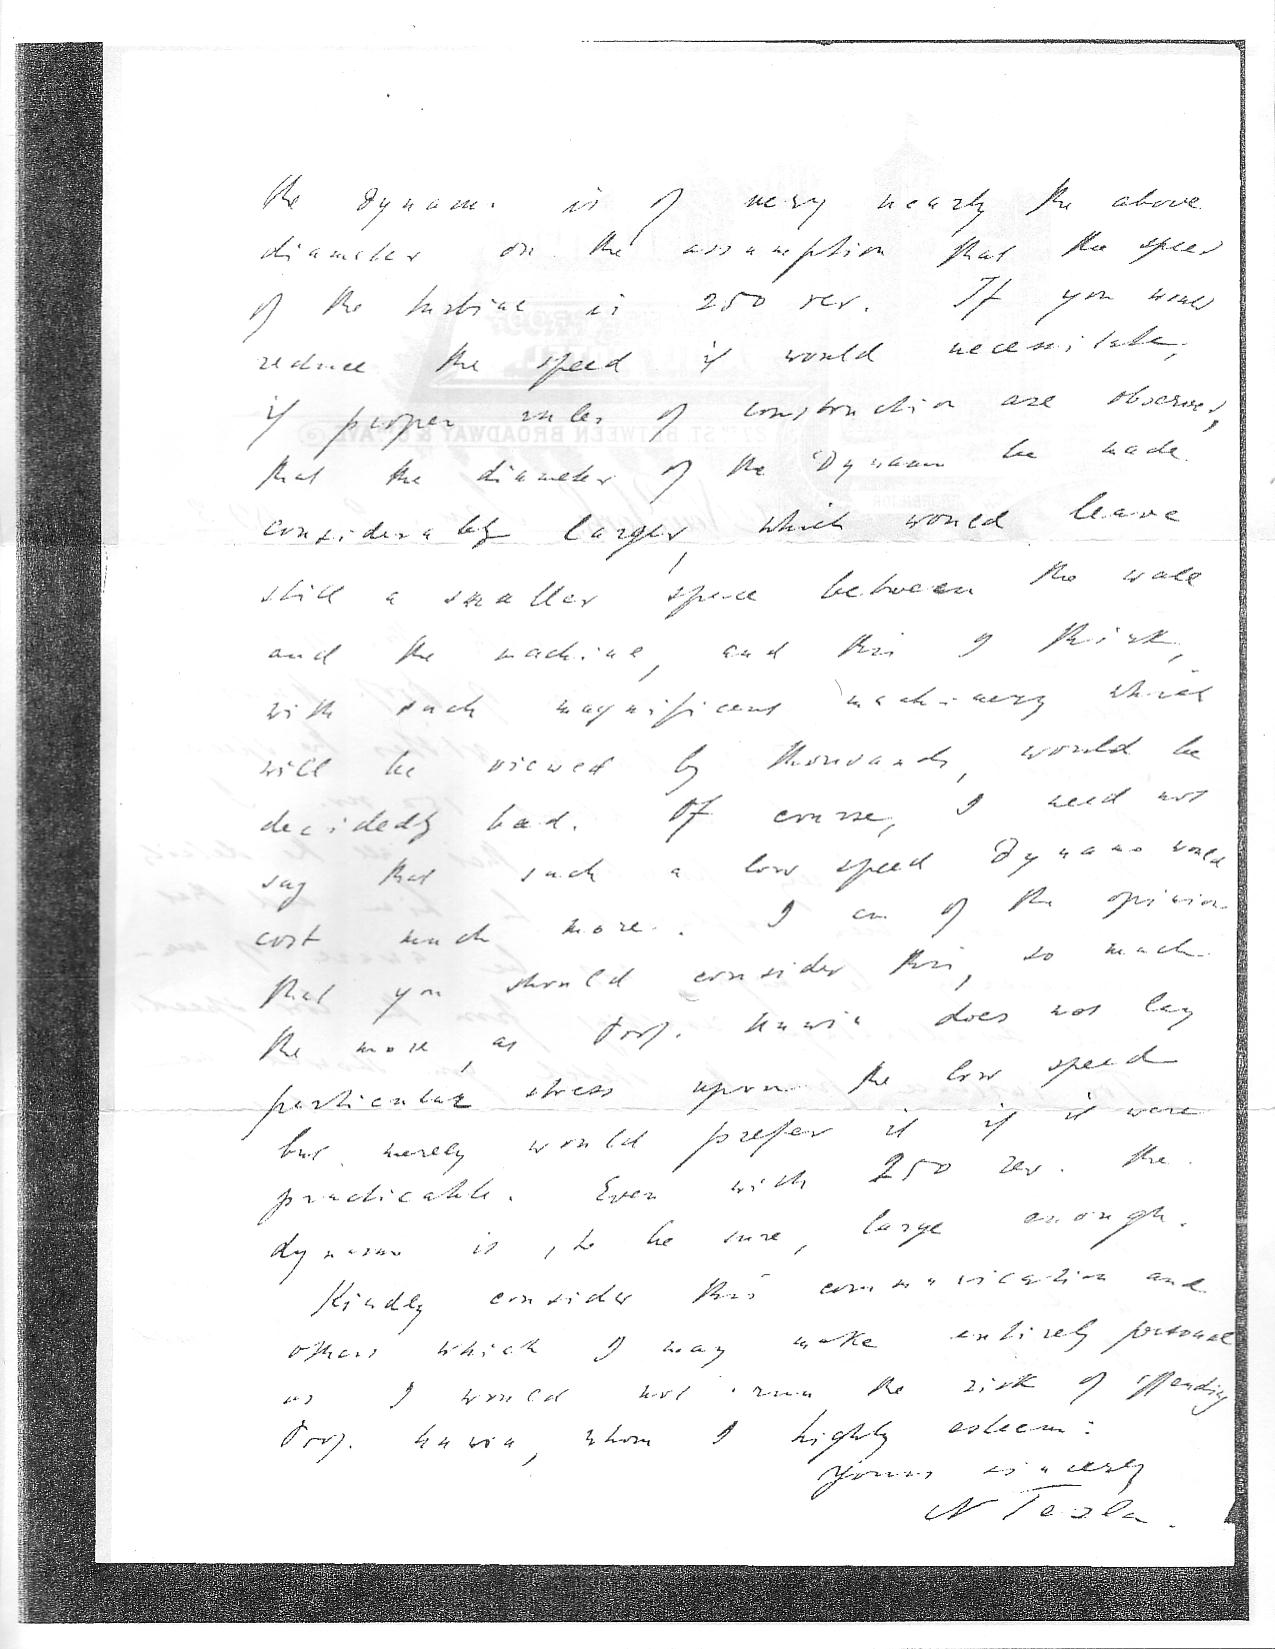 the dynamo is of very nearly the above
diameter on the assumption that the speed
of the turbine is 250 rev. If you would
reduce the speed it would necessitate,
if proper rules of construction are observed,
that the diameter of the Dynamo be made
considerably larger, which would leave
still a smaller space between the wall
and the machine, and this I think,
with such magnificent machinery which
will be viewed by thousands, would be
decidedly bad. Of course, I need not
say that such a low speed Dynamo would
cost much more. I am of the opinion
that you should consider this, so much
the more, as Prof. Unwin does not lay
particular stress upon the low speed
but merely would prefer it if it were
practicable. Even with 250 rev. the
dynamo is, to be sure, large enough.
Kindly consider this communication and
others which I may make entirely personal
as I would not run the risk of offending
Prof. Unwin, whom I highly esteem:
Yours sincerely
N Tesla.
27TH ST. BETWEEN BROADWAY &